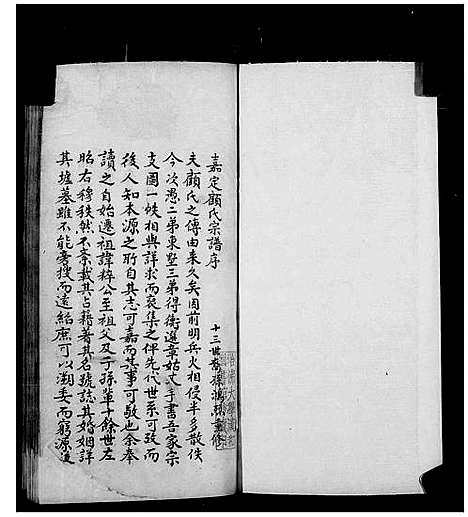 嘉定顧氏宗譜序
十三世
夫顧氏之傳由來久矣因前明兵火相侵半多散佚
今次愚二弟東墅三弟得衡進章姑丈手書吾家宗
支圖一帙相與詳求而裒集之俾先代世系可考而
後人知本源之所自其志可嘉而其事可敬也余奉
讀之自始遷祖諱粹公至祖父及子孫輩十餘世左
昭右穆秩然不紊載其占籍著其名號誌其婚姻詳
其墟墓雖不能旁搜而遠紹庶可以溯委而窮源